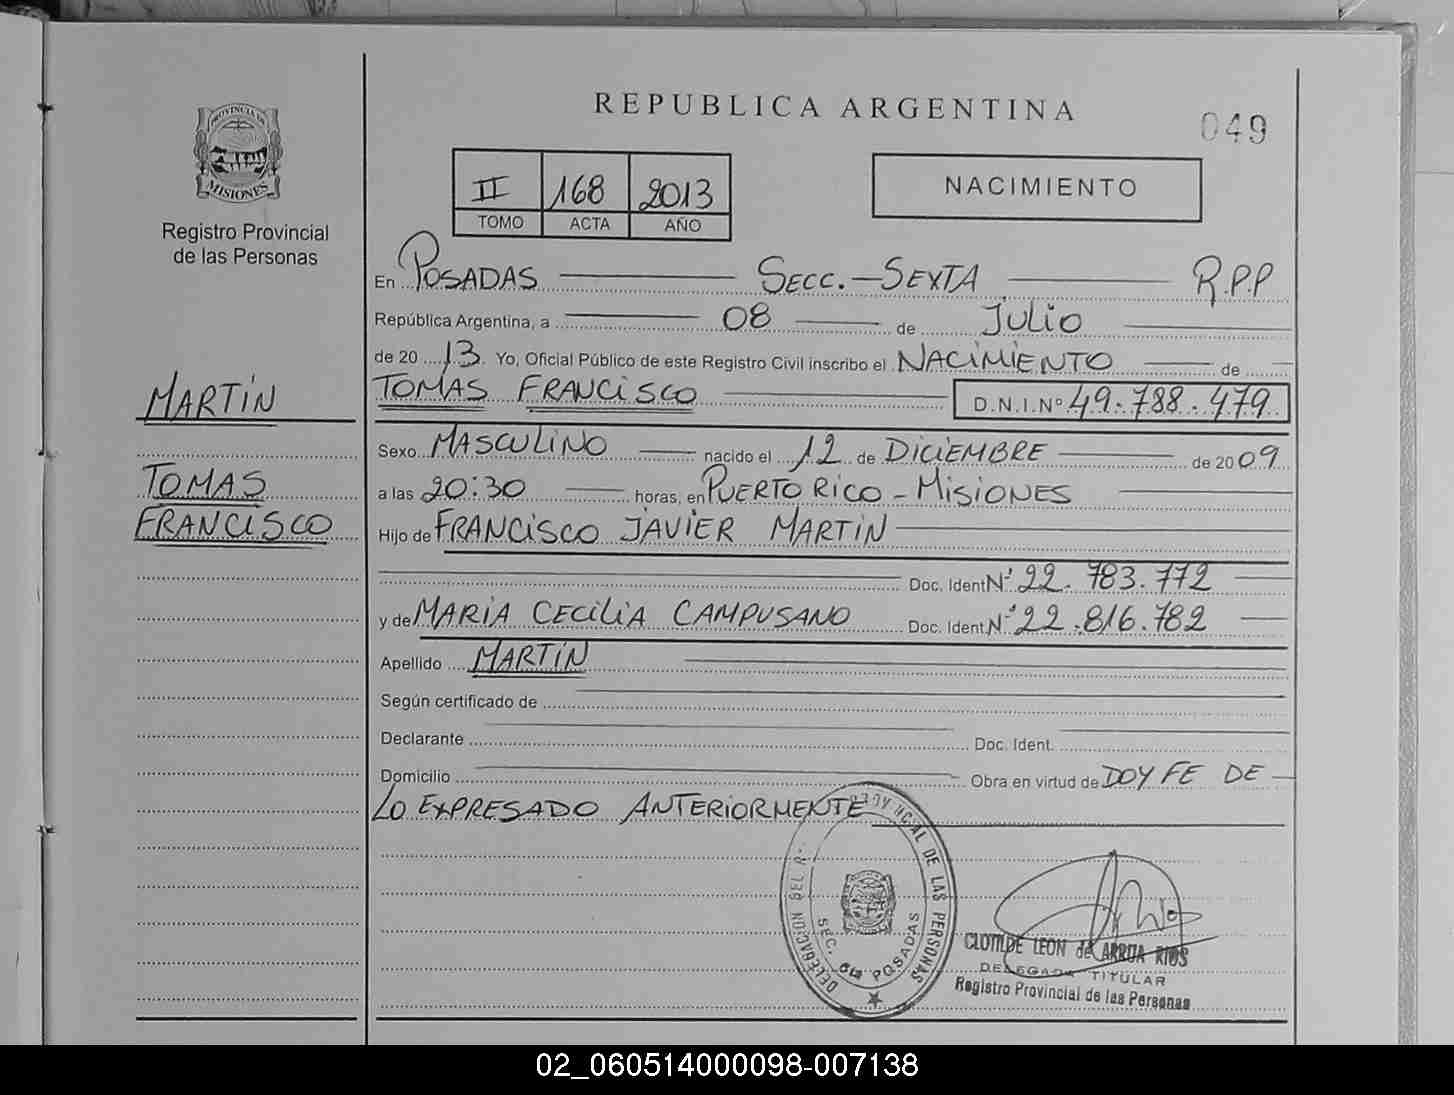 PROVINCIA DE
MISIONES
Registro Provincial
de las Personas
MARTIN
TOMAS
FRANCISCO
REPUBLICA ARGENTINA
049
II 168 2013
TOMO ACTA AÑO
NACIMIENTO
En POSADAS SECC.-SEXTA R.P.P
República Argentina, a 08 de JULIO
de 20 13 Yo, Oficial Público de este Registro Civil inscribo el NACIMIENTO de
TOMAS FRANCISCO D.N.I.Nº 49.788.479
Sexo MASCULINO nacido el 12 de DICIEMBRE de 2009
a las 20:30 horas, en PUERTO RICO - MISIONES
Hijo de FRANCISCO JAVIER MARTIN
Doc. Ident Nº 22.783.772
y de MARIA CECILIA CAMPUSANO Doc. Ident. Nº 22.816.782
Apellido MARTIN
Según certificado de
Declarante Doc. Ident.
Domicilio Obra en virtud de DOY FE DE
LO EXPRESADO ANTERIORMENTE
DELEGACION DEL R. PROVINCIAL DE LAS PERSONAS
SEC. 6ta POSADAS
CLOTILDE LEON de ARRUA RIOS
DELEGADA TITULAR
Registro Provincial de las Personas
02_060514000098-007138